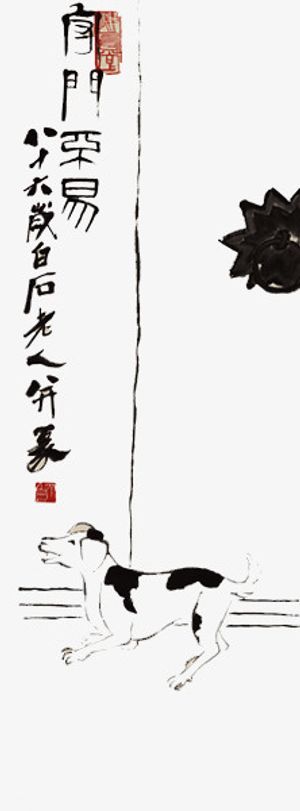 守門不易
八十六歲白石老人并篆